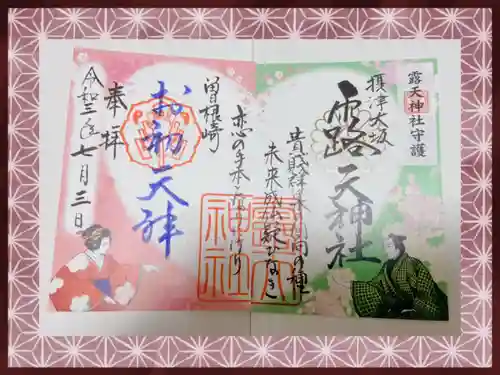 露天神社守護
摂津大坂
露天神社
貴賤群集の回向の種
未来成仏疑ひなき
恋の手本となりにけり
曽根崎
お初天神
奉拝
令和三年七月三日
露天
神社